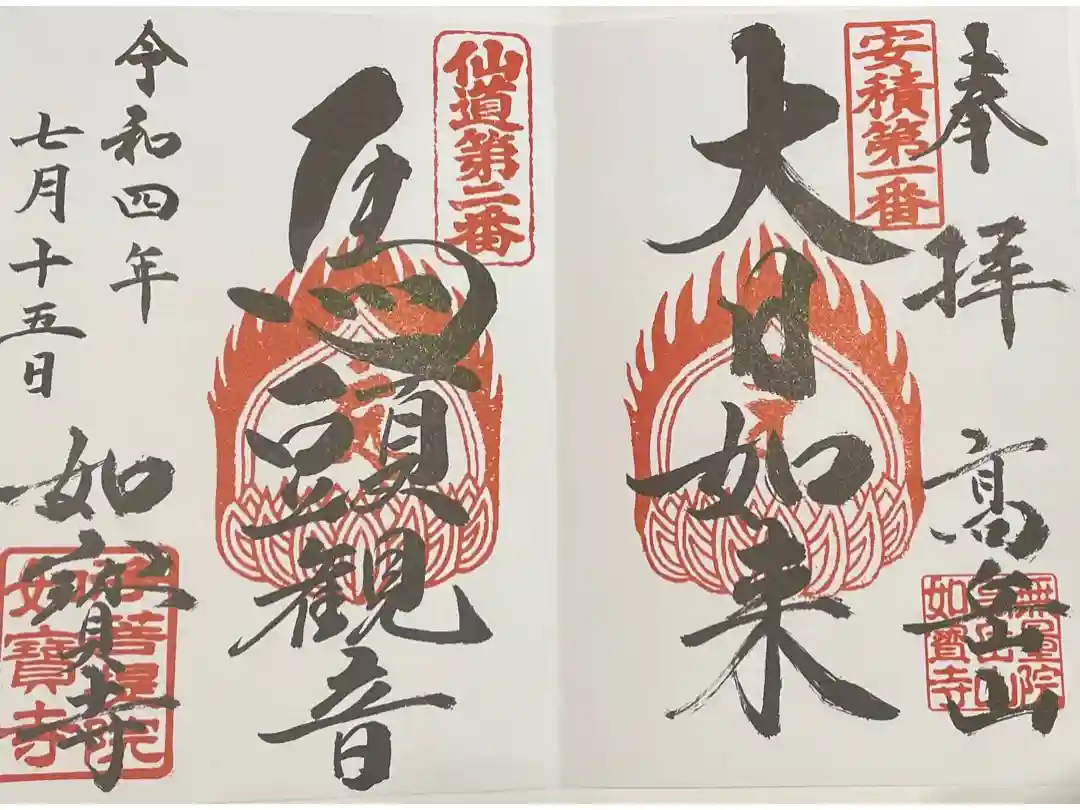 奉拝
高岳山
安積第一番
大日如来
無量院
高岳山
如寶寺
仙道第二番
馬頭観音
令和四年
七月十五日
如寳寺
菩提院
如寶寺